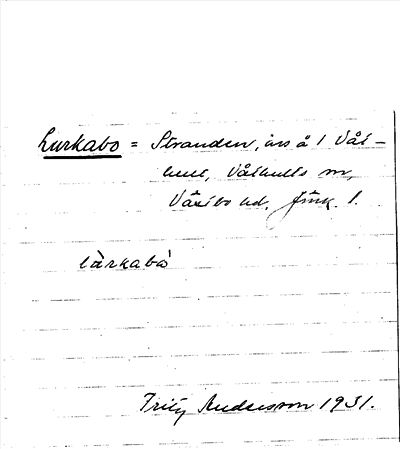 Lurkabo = Stranden, urs å 1 Vål-
hult, Vålhults sn,
Västbo hd. Jönk. l.
lärkabå
Fritz Andersson 1931.